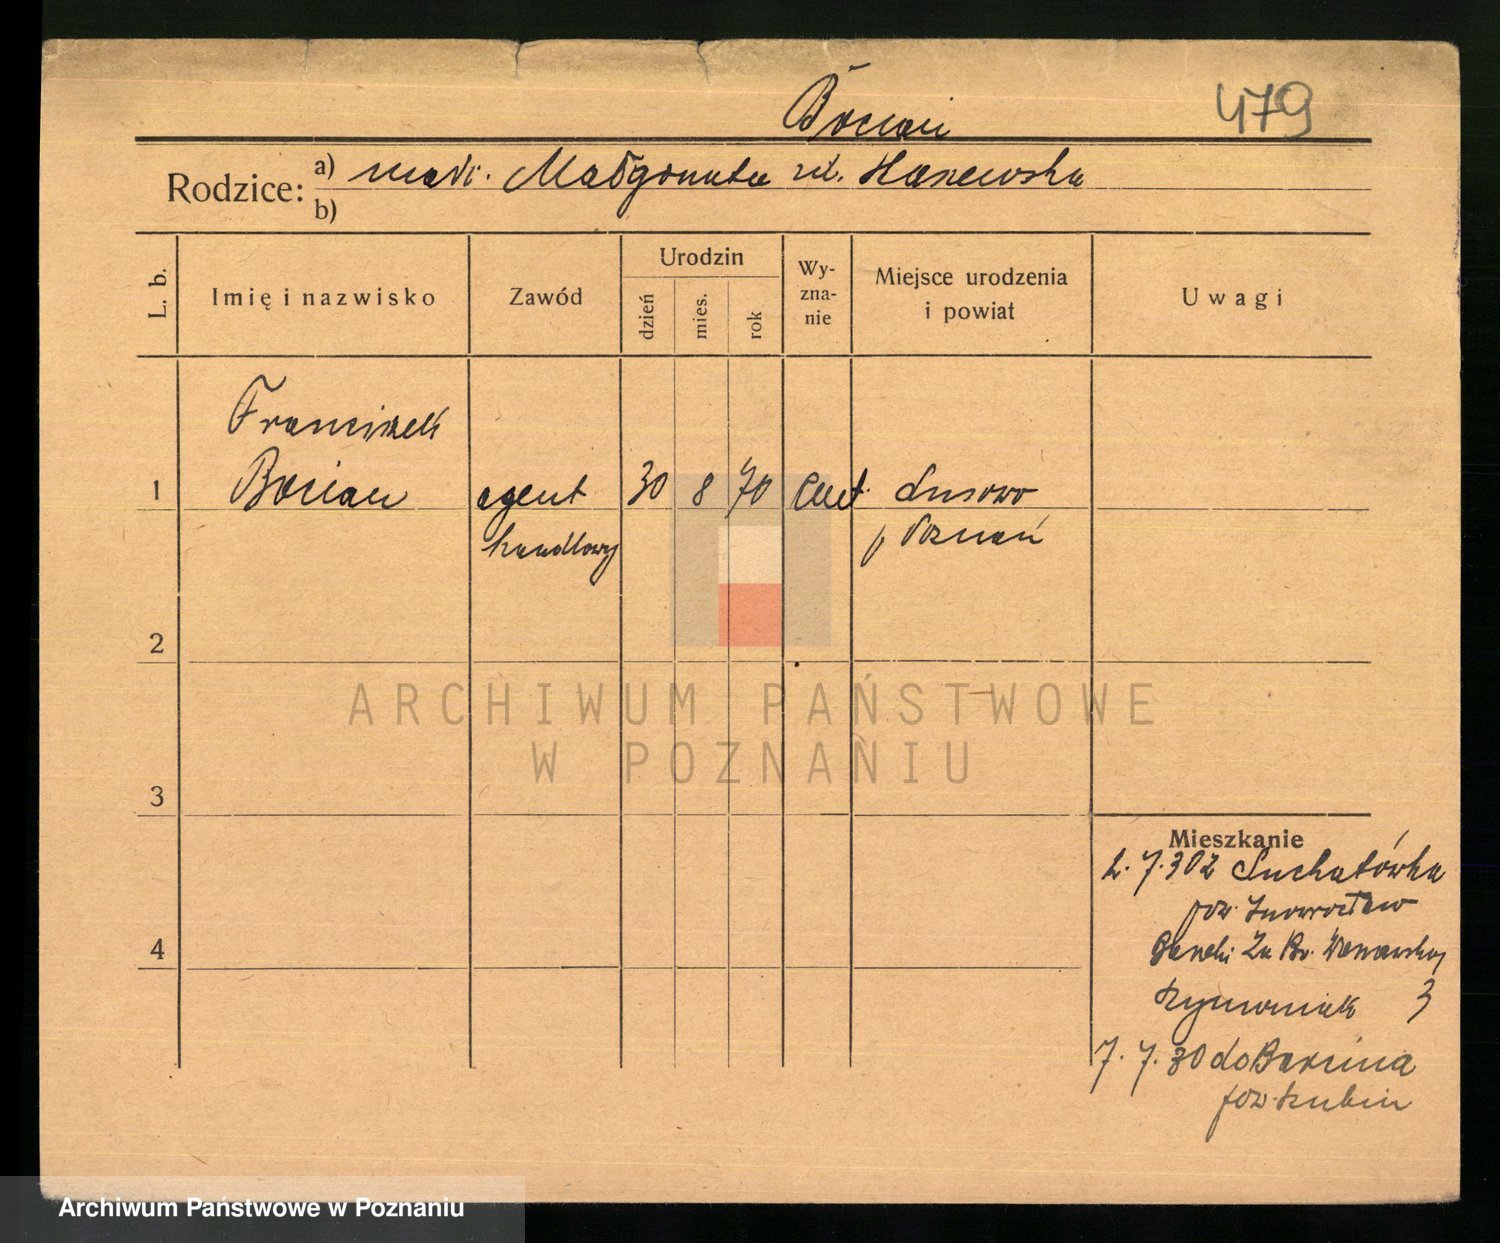 Bocian
479
Rodzice: a) Małgorzata
b)
L. b.
Imię i nazwisko
Zawód
Urodzin
dzień
mies.
rok
Wy-
zna-
nie
Miejsce urodzenia
i powiat
Uwagi
Franciszek
1 Bocian agent 30 8 70 Lusowo
handlowy p Poznań
2
ARCHIWUM PAŃSTWOWE
W POZNANIU
3
Mieszkanie
2. 7. 30 z Suchatówka
pow. Inowrocław
4
Szymoniak 3
7. 7. 30 do Barcina
pow. Szubin
Archiwum Państwowe w Poznaniu